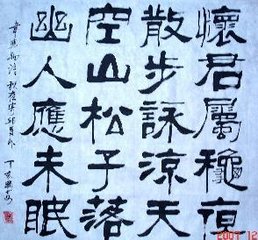 懷君屬穐夜
散步詠涼天
空山松子落
幽人應未眠
韋應物詩 秋夜寄邱員外
2007 12